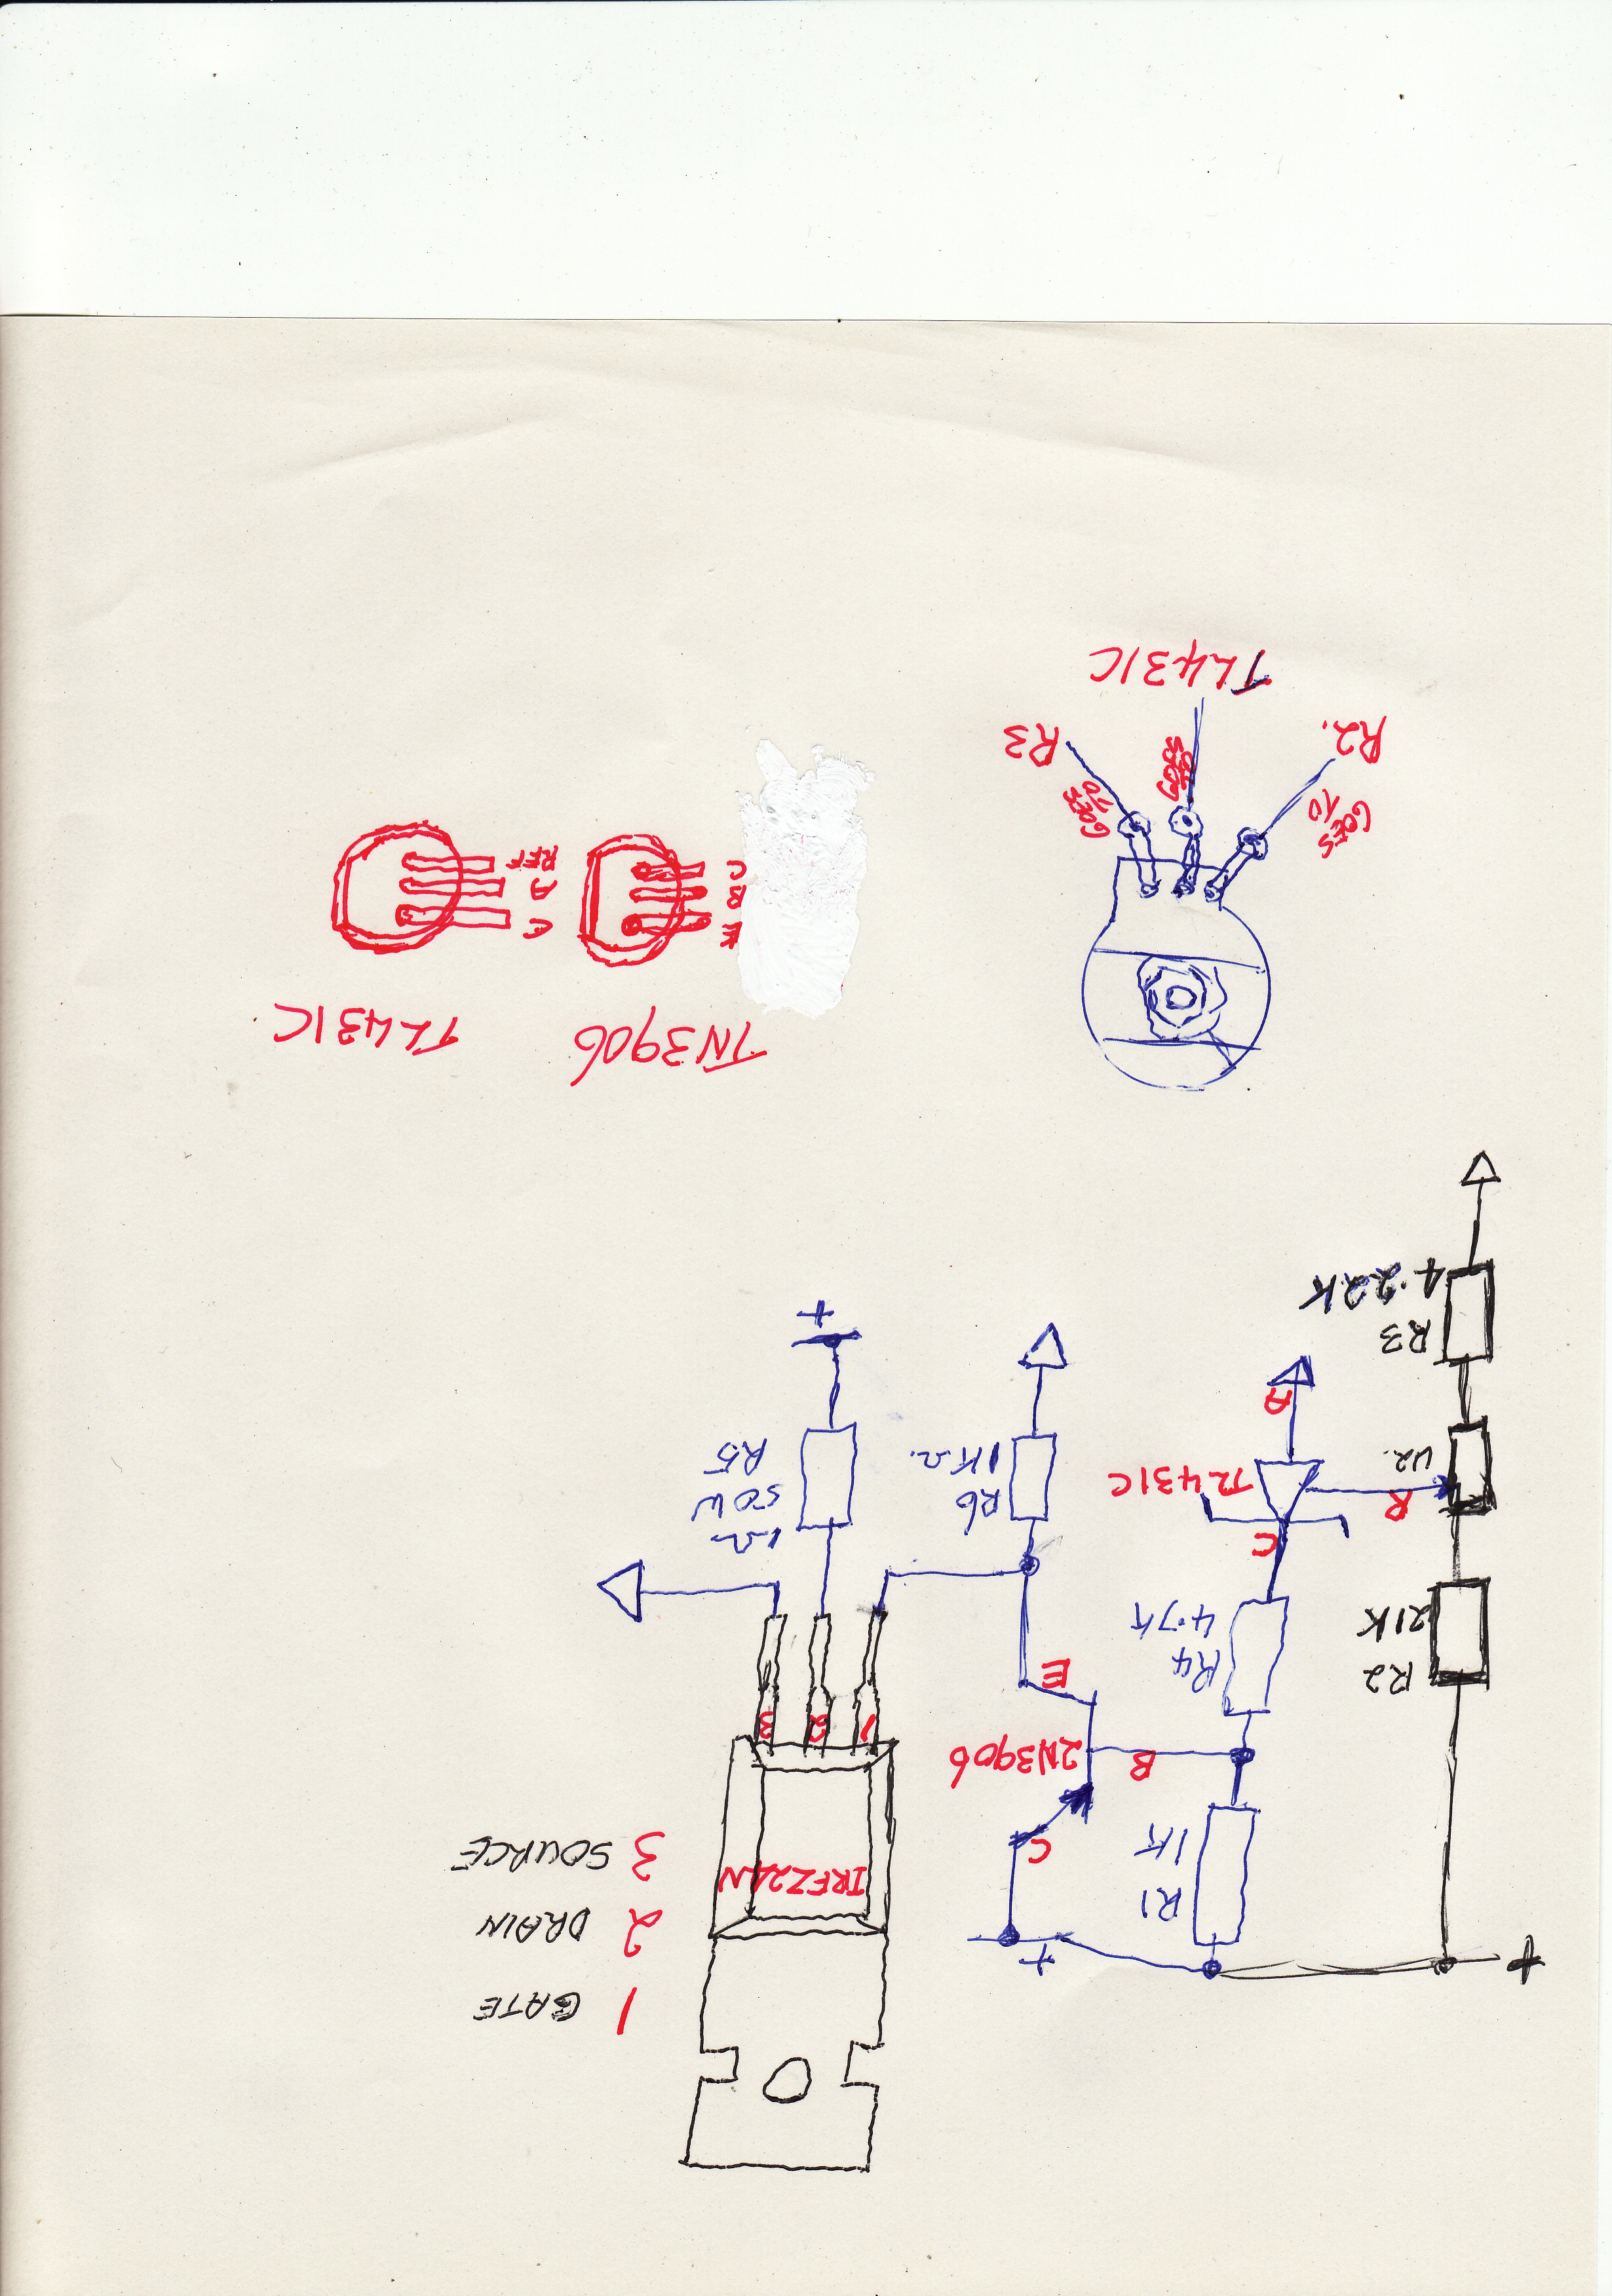 1 GATE
+
+
2 DRAIN
R1
1K
IRFZ24N
3 SOURCE
C
B
2N3906
1 2 3
E
R2
21K
R4
4.7K
C
1Ω
50W
R5
R
TL431C
R6
1KΩ
A
R3
4.22K
+
TN3906
TL431C
E
B
C
C
A
REF
GOES
TO
R2.
GOES
TO
TL431C
GOES
TO
R3